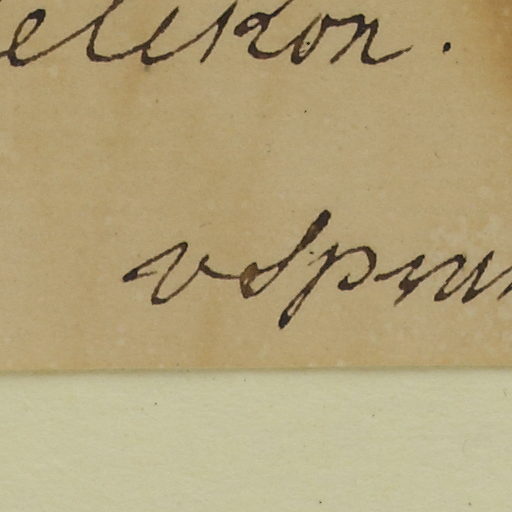 elikon.
v Sprun